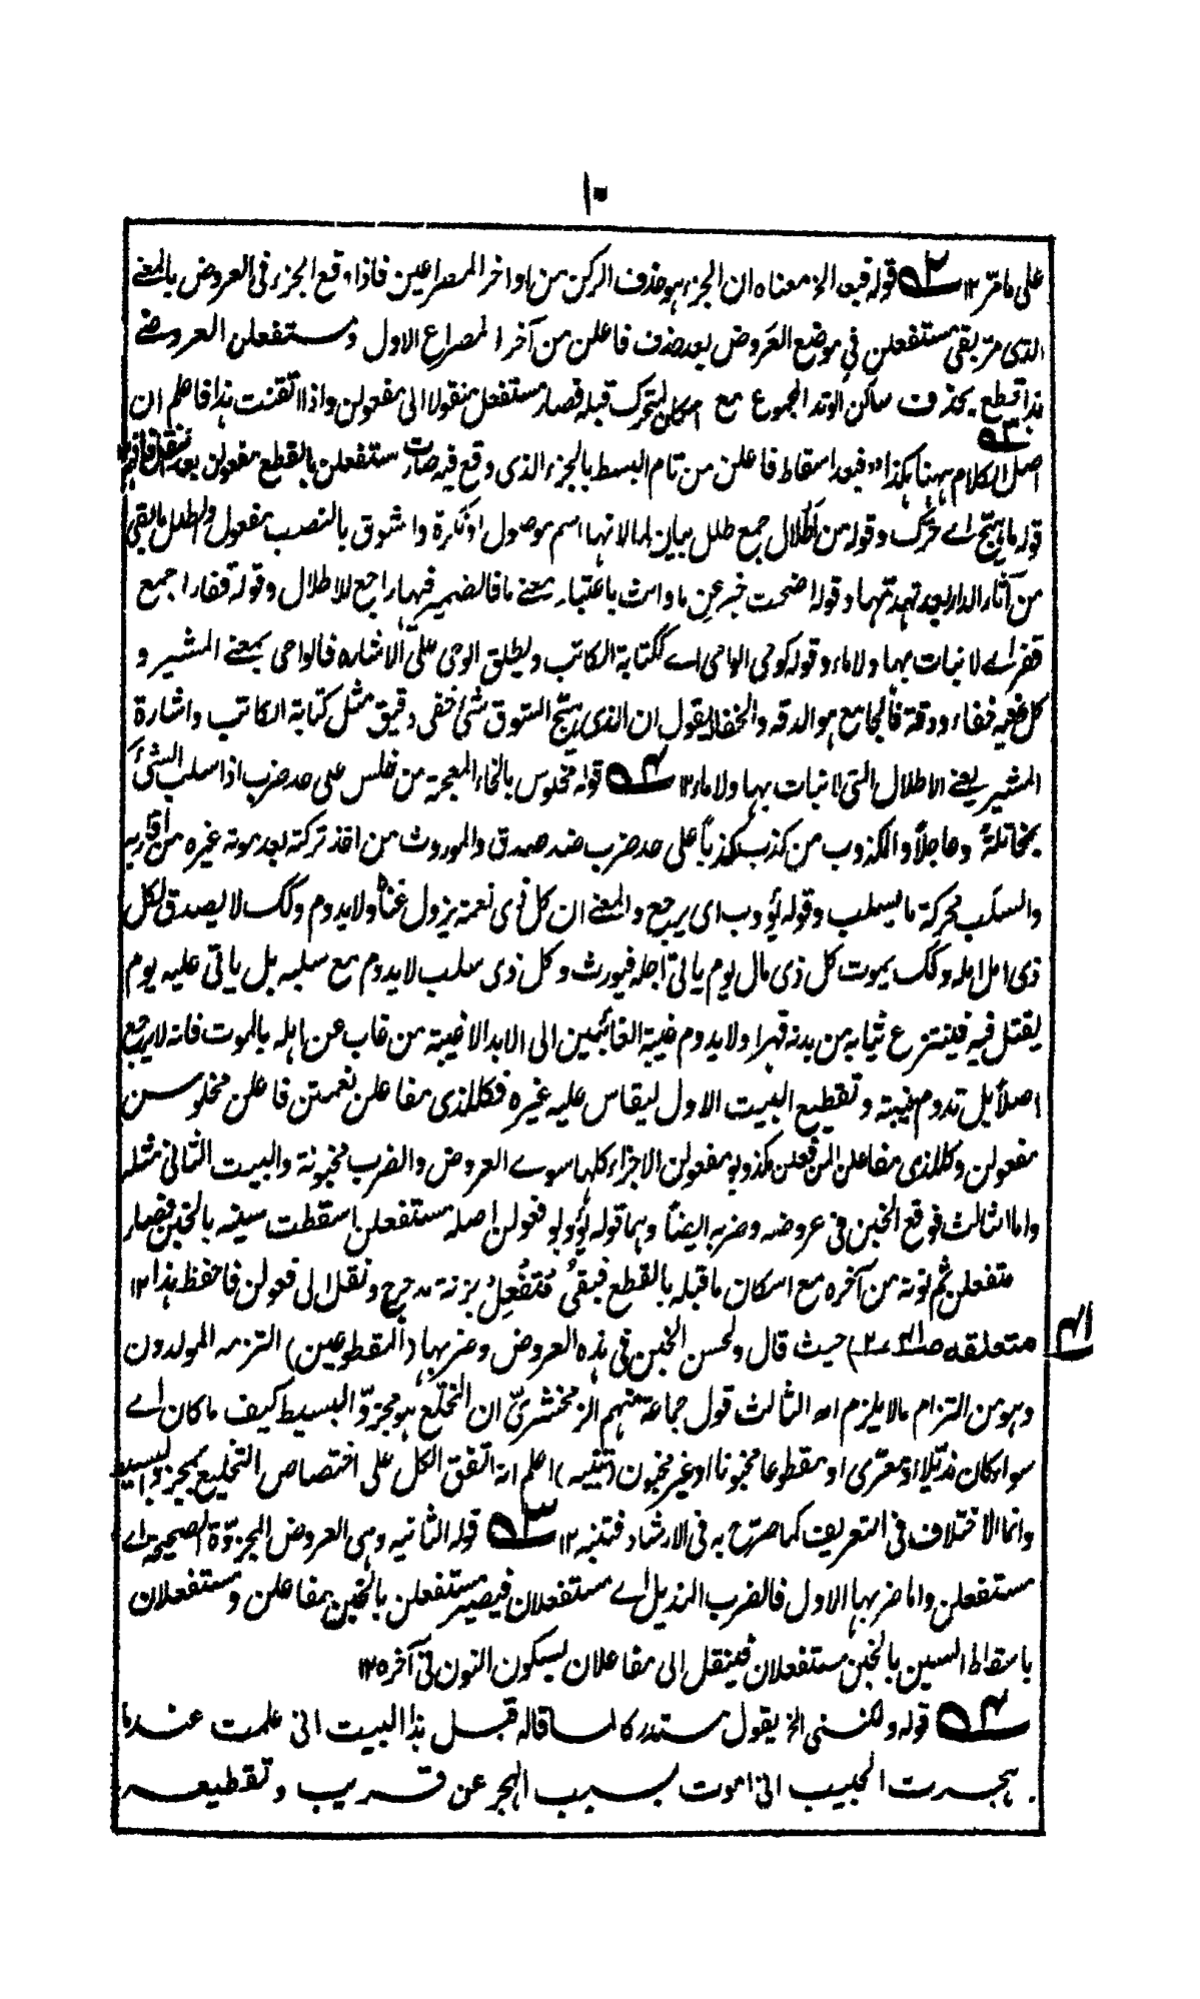 ۱۰
على مامر ۱۲ ۲؎ قوله فبعد الخ معناه ان الجزء هو حذف الركن من اواخر المصراعين فاذا وقع الجزء فى العروض بالمعنے
الذى مر بقى مستفعلن في موضع العروض بعد حذف فاعلن من آخر المصراع الاول ومستفعلن العروضے
هذا قطع بحذف ساكن الوتد المجموع مع اسكان المتحرك قبله فصار مستفعل منقولا الى مفعولن واذا اتقنت هذا فاعلم ان
اصل الكلام ههنا هكذا وفبعد اسقاط فاعلن من تام البسط بالجزء الذى وقع فيه صارت مستفعلن بالقطع مفعولن بعد نقل فافهم ۱۲ ۳؎
قوله ما هيّج اے حرّك وقوله من أطلال جمع طلل بيان لما لانها اسم موصول او نكرة والشوق بالنصب مفعول والطلل ما بقى
من آثار الدار بعد تهدمها وقوله اضحت خبر عن ما وانث باعتبار معنے ما فالضمير فيها راجع للاطلال وقوله قفارا جمع
قفر اے لا نبات بها ولا ماء وقوله كوحى الواحى اے ككتابة الكاتب ويطلق الوحى على الاشاره فالواحى بمعنے المشير و
كل فيه خفاء ودقة فالجامع هو الدقه والخفاء يقول ان الذى هيّج الشوق شئ خفى دقيق مثل كتابة الكاتب واشارة
المشير يعنے الاطلال التى لا نبات بها ولا ماء ۱۲ ۴؎ قوله مخلوس بالخاء المعجمة من خلس على حد ضرب اذا سلب الشئ
بمخاتلةٍ وعاجلاً والمكذوب من كذب كذباً على حد ضرب ضد صدق والموروث من اخذ تركته بعد موته غيره من اقاربه
والسلب محركة ما يسلب وقوله يؤوب اى يرجع والمعنے ان كل ذى نعمة يزول غناه ولا يدوم وكك لا يصدق لكل
ذى امل امله وكك يموت كل ذى مال يوم ياتى اجله فيورث وكل ذى سلب لا يدوم مع سلبه بل ياتى عليه يوم
يقتل فيه فينتزع ثيابه من بدنه قهرا ولا يدوم غيبة الغائبين الى الابد الا غيبة من غاب عن اهله بالموت فانه لا يرجع
اصلاً بل تدوم غيبته وتقطيع البيت الاول ليقاس عليه غيره فكللذى مفاعلن نعمتن فاعلن مخلوسن
مفعولن وكللذى مفاعلن املن فعلن مكذوبو مفعولن الاجزاء كلها سوے العروض والضرب مخبونة والبيت الثانى مثله
واما الثالث فوقع الخبن فى عروضه وضربه ايضاً وهما قوله يؤوبو فعولن اصله مستفعلن اسقطت سينه بالخبن فصار
متفعلن ثم نونه من آخره مع اسكان ما قبله بالقطع فبقى مُتَفْعِلْ بزنة مدحرج ونقل الى فعولن فاحفظ هذا ۱۲
متعلقه صا۴؎ ۲) حيث قال ولحسن الخبن فى هذه العروض وضربها (المقطوعين) التزمه المولدون
وهو من التزام مالا يلزم اه الثالث قول جماعة منهم الزمخشرىّ ان المخلّع هو مجزوّ البسيط كيف ما كان اے
سواء كان مذيلا او معرّى او مقطوعا مخبونا او غير مخبون (تنبيه) اعلم انه اتفق الكل على اختصاص التخليع بمجزو البسيط
وانما الاختلاف فى التعريف كما صرّح به فى الارشاد فتنبه ۱۲ ۳؎ قوله الثانيه وهى العروض المجزوّة الصحيحة اے
مستفعلن واما ضربها الاول فالضرب المذيل اے مستفعلان فيصير مستفعلن بالخبن مفاعلن ومستفعلان
باسقاط السين بالخبن مستفعلان فينقل الى مفاعلان بسكون النون فى آخره ۱۲
۴؎ قوله ولكننى الخ يقول مستدركا لما قاله قبل هذا البيت انى علمت عندما
هجرت الحبيب انى اموت بسبب الهجر عن قريب وتقطيعه